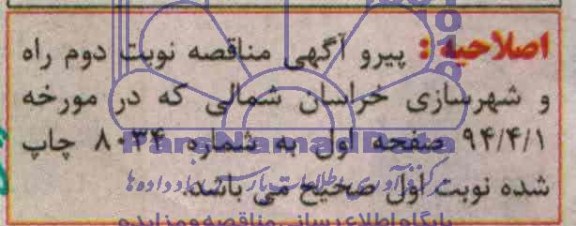 اصلاحیه : پیرو آگهی مناقصه نوبت دوم راه
و شهرسازی خراسان شمالی که در مورخه
۹۴/۴/۱ صفحه اول به شماره ۸۰۳۴ چاپ
ParsNamadData
شده نوبت اول صحیح می باشد.
پایگاه اطلاع رسانی مناقصه و مزایده